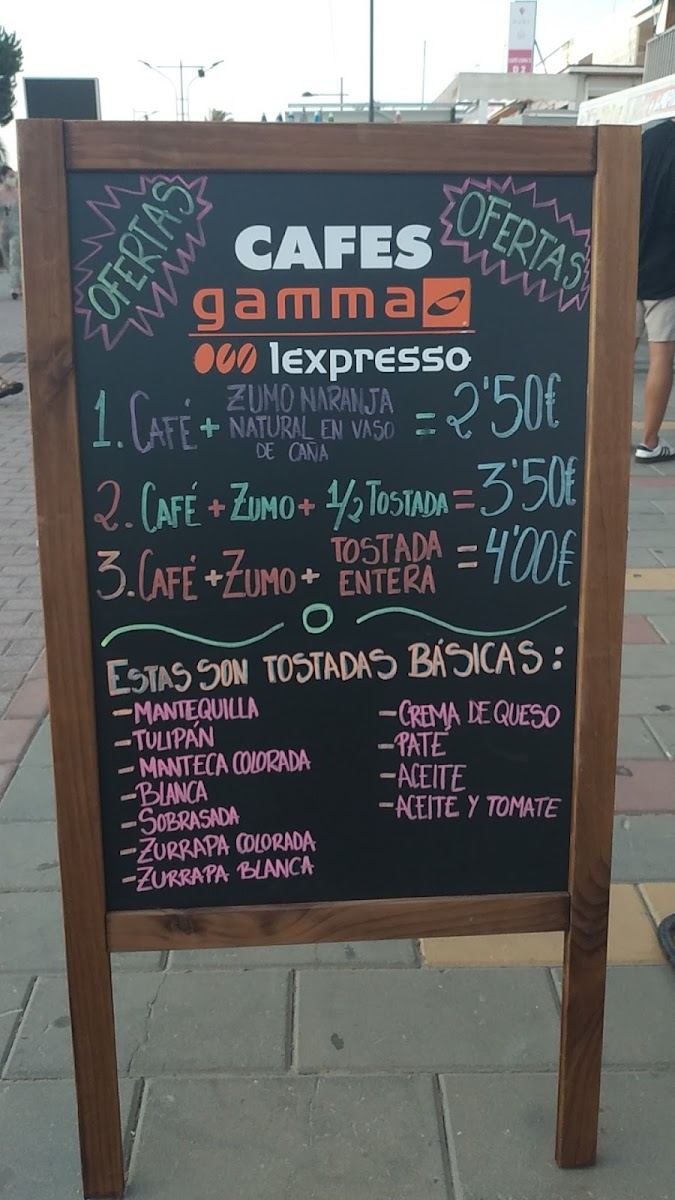 OFERTAS
OFERTAS
CAFES
gamma
lexpresso
1. CAFÉ + ZUMO NARANJA NATURAL EN VASO DE CAÑA = 2'50€
2. CAFÉ + ZUMO + 1/2 TOSTADA = 3'50€
3. CAFÉ + ZUMO + TOSTADA ENTERA = 4'00€
ESTAS SON TOSTADAS BÁSICAS:
- MANTEQUILLA
- TULIPÁN
- MANTECA COLORADA
- BLANCA
- SOBRASADA
- ZURRAPA COLORADA
- ZURRAPA BLANCA
- CREMA DE QUESO
- PATE
- ACEITE
- ACEITE Y TOMATE